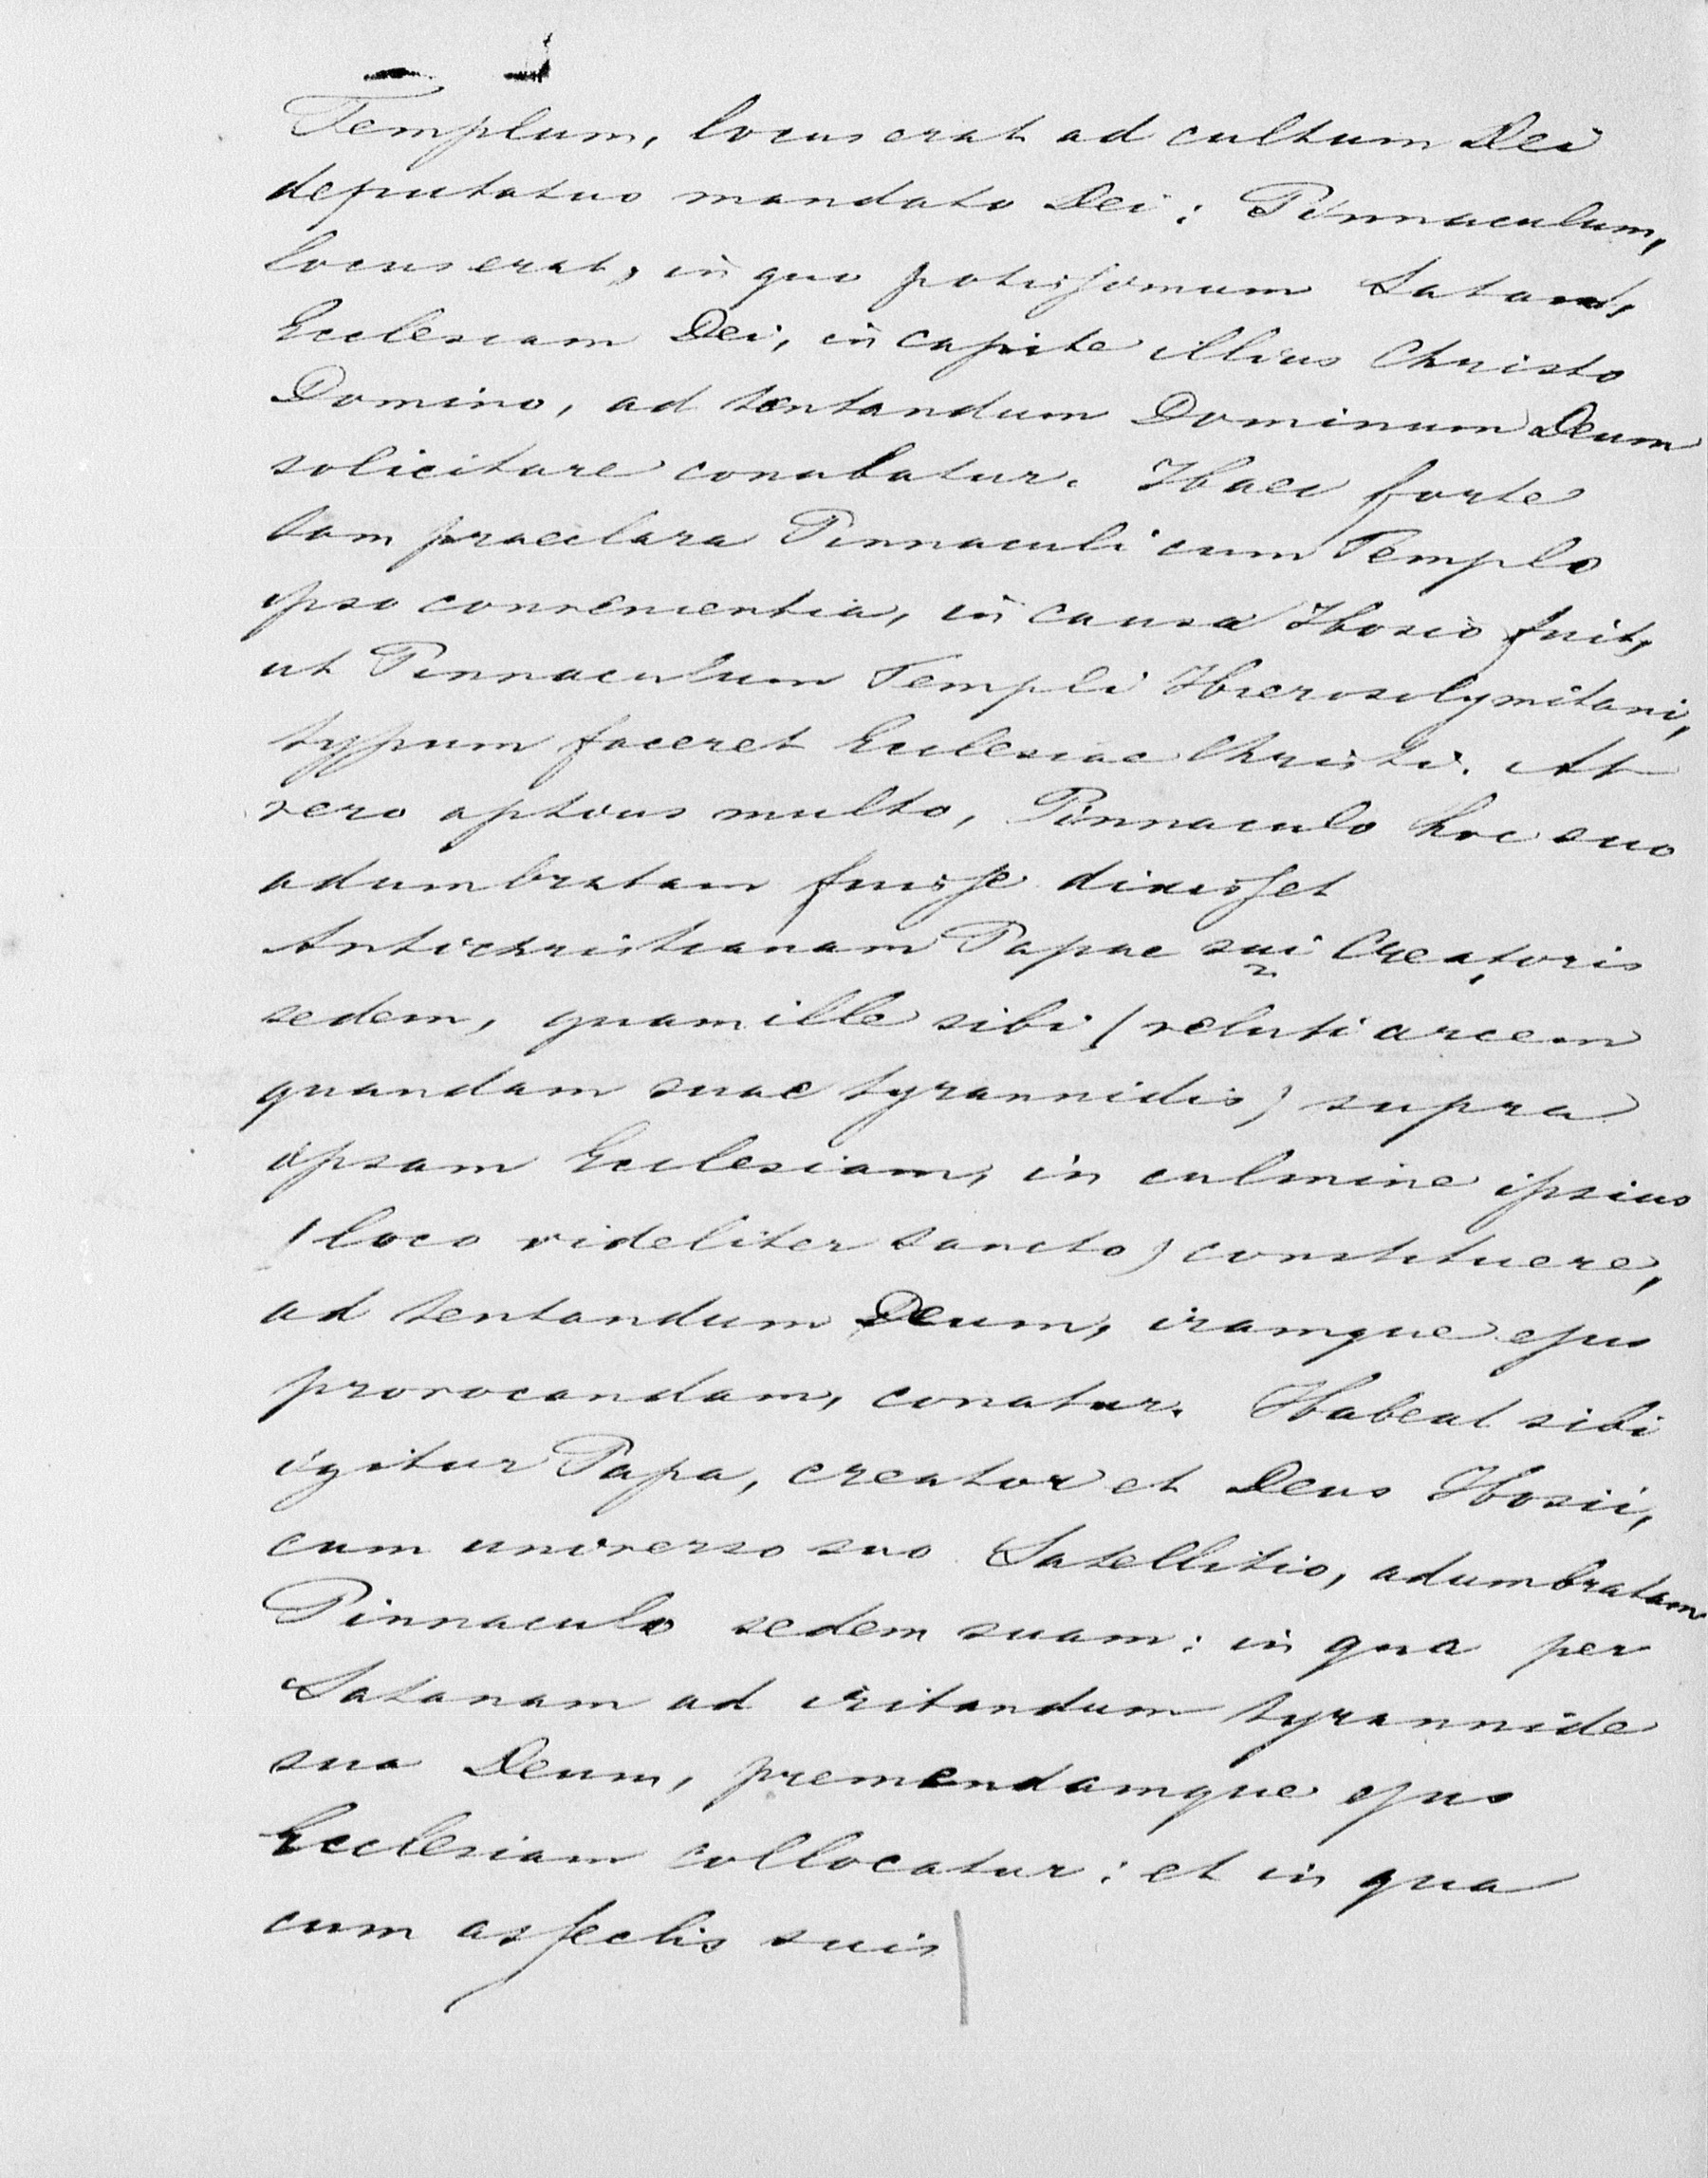 Templum, locus erat ad cultum Dei
deputatus mandato Dei: Pinnaculum,
locus erat, in quo potissimum Satan,
Ecclesiam Dei, in capite illius Christo
Domino, ad tentandum Dominum Deum
solicitare conabatur. Haec forte
tam praeclara Pinnaculi cum Templo
ipso convenientia, in causa Hosio fuit,
ut Pinnaculum Templi Hierosolymitani,
typum faceret Ecclesiae Christi. At
vero aptius multo, Pinnaculo hoc suo
adumbratam fuisse dixisset
Antichristianam Papae sui Creatoris
sedem, quam ille sibi (veluti arcem
quandam suae tyrannidis) supra
ipsam Ecclesiam, in culmine ipsius
(loco videliter sancto) constituere,
ad tentandum Deum, iramque ejus
provocandam, conatur. Habeat sibi
igitur Papa, creator et Deus Hosii,
cum universo suo Satellitio, adumbratam
Pinnaculo sedem suam: in qua per
Satanam ad iritandum tyrannide
sua Deum, premendamque ejus
Ecclesiam collocatur: et in qua
cum asseclis suis